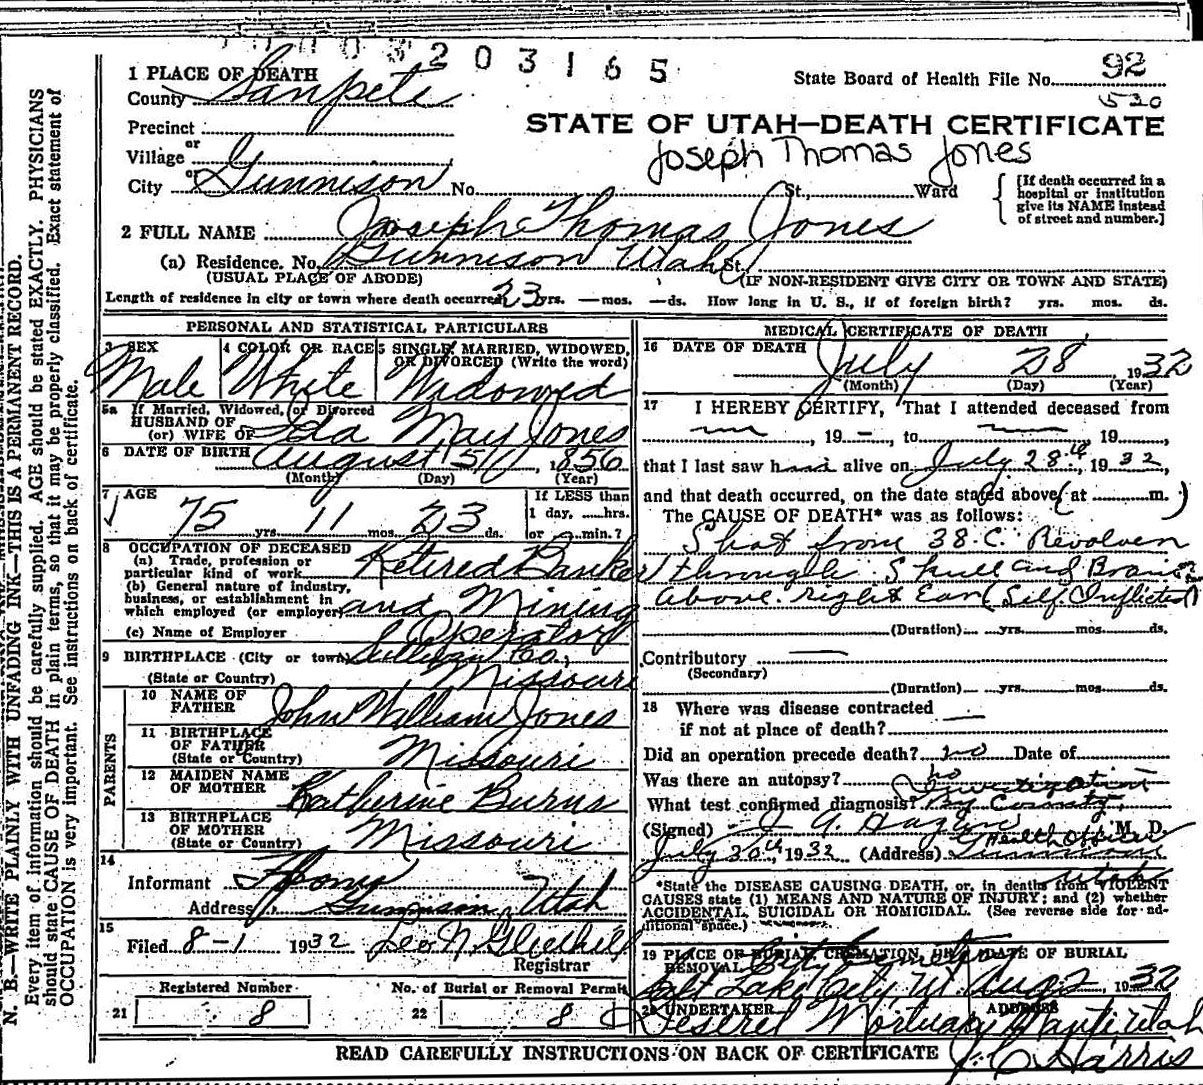 0 0 0 3 2 0 3 1 6 5
State Board of Health File No. 92
530
1 PLACE OF DEATH
County Sanpete
Precinct
or
Village
or
City Gunnison No. St., Ward
STATE OF UTAH—DEATH CERTIFICATE
Joseph Thomas Jones
[If death occurred in a
hospital or institution
give its NAME instead
of street and number.]
2 FULL NAME Joseph Thomas Jones
(a) Residence. No. Gunnison Utah St.
(USUAL PLACE OF ABODE) (IF NON-RESIDENT GIVE CITY OR TOWN AND STATE)
Length of residence in city or town where death occurred 23 yrs. — mos. — ds. How long in U. S., if of foreign birth? yrs. mos. ds.
PERSONAL AND STATISTICAL PARTICULARS
3 SEX
Male
4 COLOR OR RACE
White
5 SINGLE, MARRIED, WIDOWED,
OR DIVORCED (Write the word)
Widowed
5a If Married, Widowed, or Divorced
HUSBAND OF
(or) WIFE OF Ida May Jones
6 DATE OF BIRTH August 5, 1856
(Month) (Day) (Year)
7 AGE
75 yrs. 11 mos. 23 ds.
If LESS than
1 day, hrs.
or min.?
8 OCCUPATION OF DECEASED
(a) Trade, profession or
particular kind of work Retired Banker
(b) General nature of industry,
business, or establishment in
which employed (or employer) and Mining
Operator
(c) Name of Employer
9 BIRTHPLACE (City or town) Sullivan Co.,
(State or Country) Missouri
PARENTS
10 NAME OF
FATHER John William Jones
11 BIRTHPLACE
OF FATHER
(State or Country) Missouri
12 MAIDEN NAME
OF MOTHER Katherine Burns
13 BIRTHPLACE
OF MOTHER
(State or Country) Missouri
14
Informant
Address Gunnison, Utah
15
Filed 8-1 1932
Registrar
Registered Number
21 8
No. of Burial or Removal Permit
22 8
MEDICAL CERTIFICATE OF DEATH
16 DATE OF DEATH July 28 1932
(Month) (Day) (Year)
17 I HEREBY CERTIFY, That I attended deceased from
, 19 –, to 19 ,
that I last saw h alive on July 28th, 1932,
and that death occurred, on the date stated above (at m.)
The CAUSE OF DEATH* was as follows:
Shot from 38.C. Revolver
through Skull and Brain
above right Ear (Self Inflicted)
(Duration) yrs. mos. ds.
Contributory —
(Secondary)
(Duration) yrs. mos. ds.
18 Where was disease contracted
if not at place of death? —
Did an operation precede death? no Date of
Was there an autopsy? no
Investigation
What test confirmed diagnosis? By County
(Signed) M. D.
Health Officer
July 30th, 1932 (Address) Gunnison
Utah
*State the DISEASE CAUSING DEATH, or, in deaths from VIOLENT
CAUSES state (1) MEANS AND NATURE OF INJURY; and (2) whether
ACCIDENTAL, SUICIDAL OR HOMICIDAL. (See reverse side for additional space.)
19 PLACE OF BURIAL, CREMATION, OR REMOVAL DATE OF BURIAL
City Cemetery
Salt Lake City, Ut Aug 2, 1932
20 UNDERTAKER ADDRESS
Deseret Mortuary Manti, Utah
J. C. Harris
READ CAREFULLY INSTRUCTIONS ON BACK OF CERTIFICATE
N. B.—WRITE PLAINLY WITH UNFADING INK—THIS IS A PERMANENT RECORD.
Every item of information should be carefully supplied. AGE should be stated EXACTLY. PHYSICIANS
should state CAUSE OF DEATH in plain terms, so that it may be properly classified. Exact statement of
OCCUPATION is very important. See instructions on back of certificate.